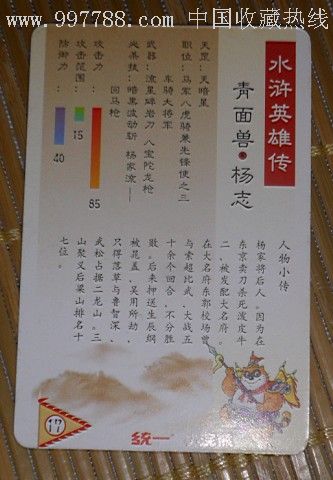 www.997788.com 中国收藏热线
水浒英雄传
青面兽·杨志
天罡：天暗星
职位：马军八虎骑兼先锋使之三
车骑大将军
武器：流星碎岩刀 八宝陀龙枪
必杀技：暗黑波动斩 杨家流——
回马枪
攻击力：
85
攻击范围：
15
防御力：
40
人物小传
杨家将后人。因为在
东京卖刀杀死泼皮牛
二，被发配大名府。
在大名府东郭校场曾
与索超比武，大战五
十余个回合，不分胜
败。后来押送生辰纲
被晁盖、吴用所劫，
只得落草与鲁智深、
武松占据二龙山。三
山聚义后梁山排名十
七位。
17
统一